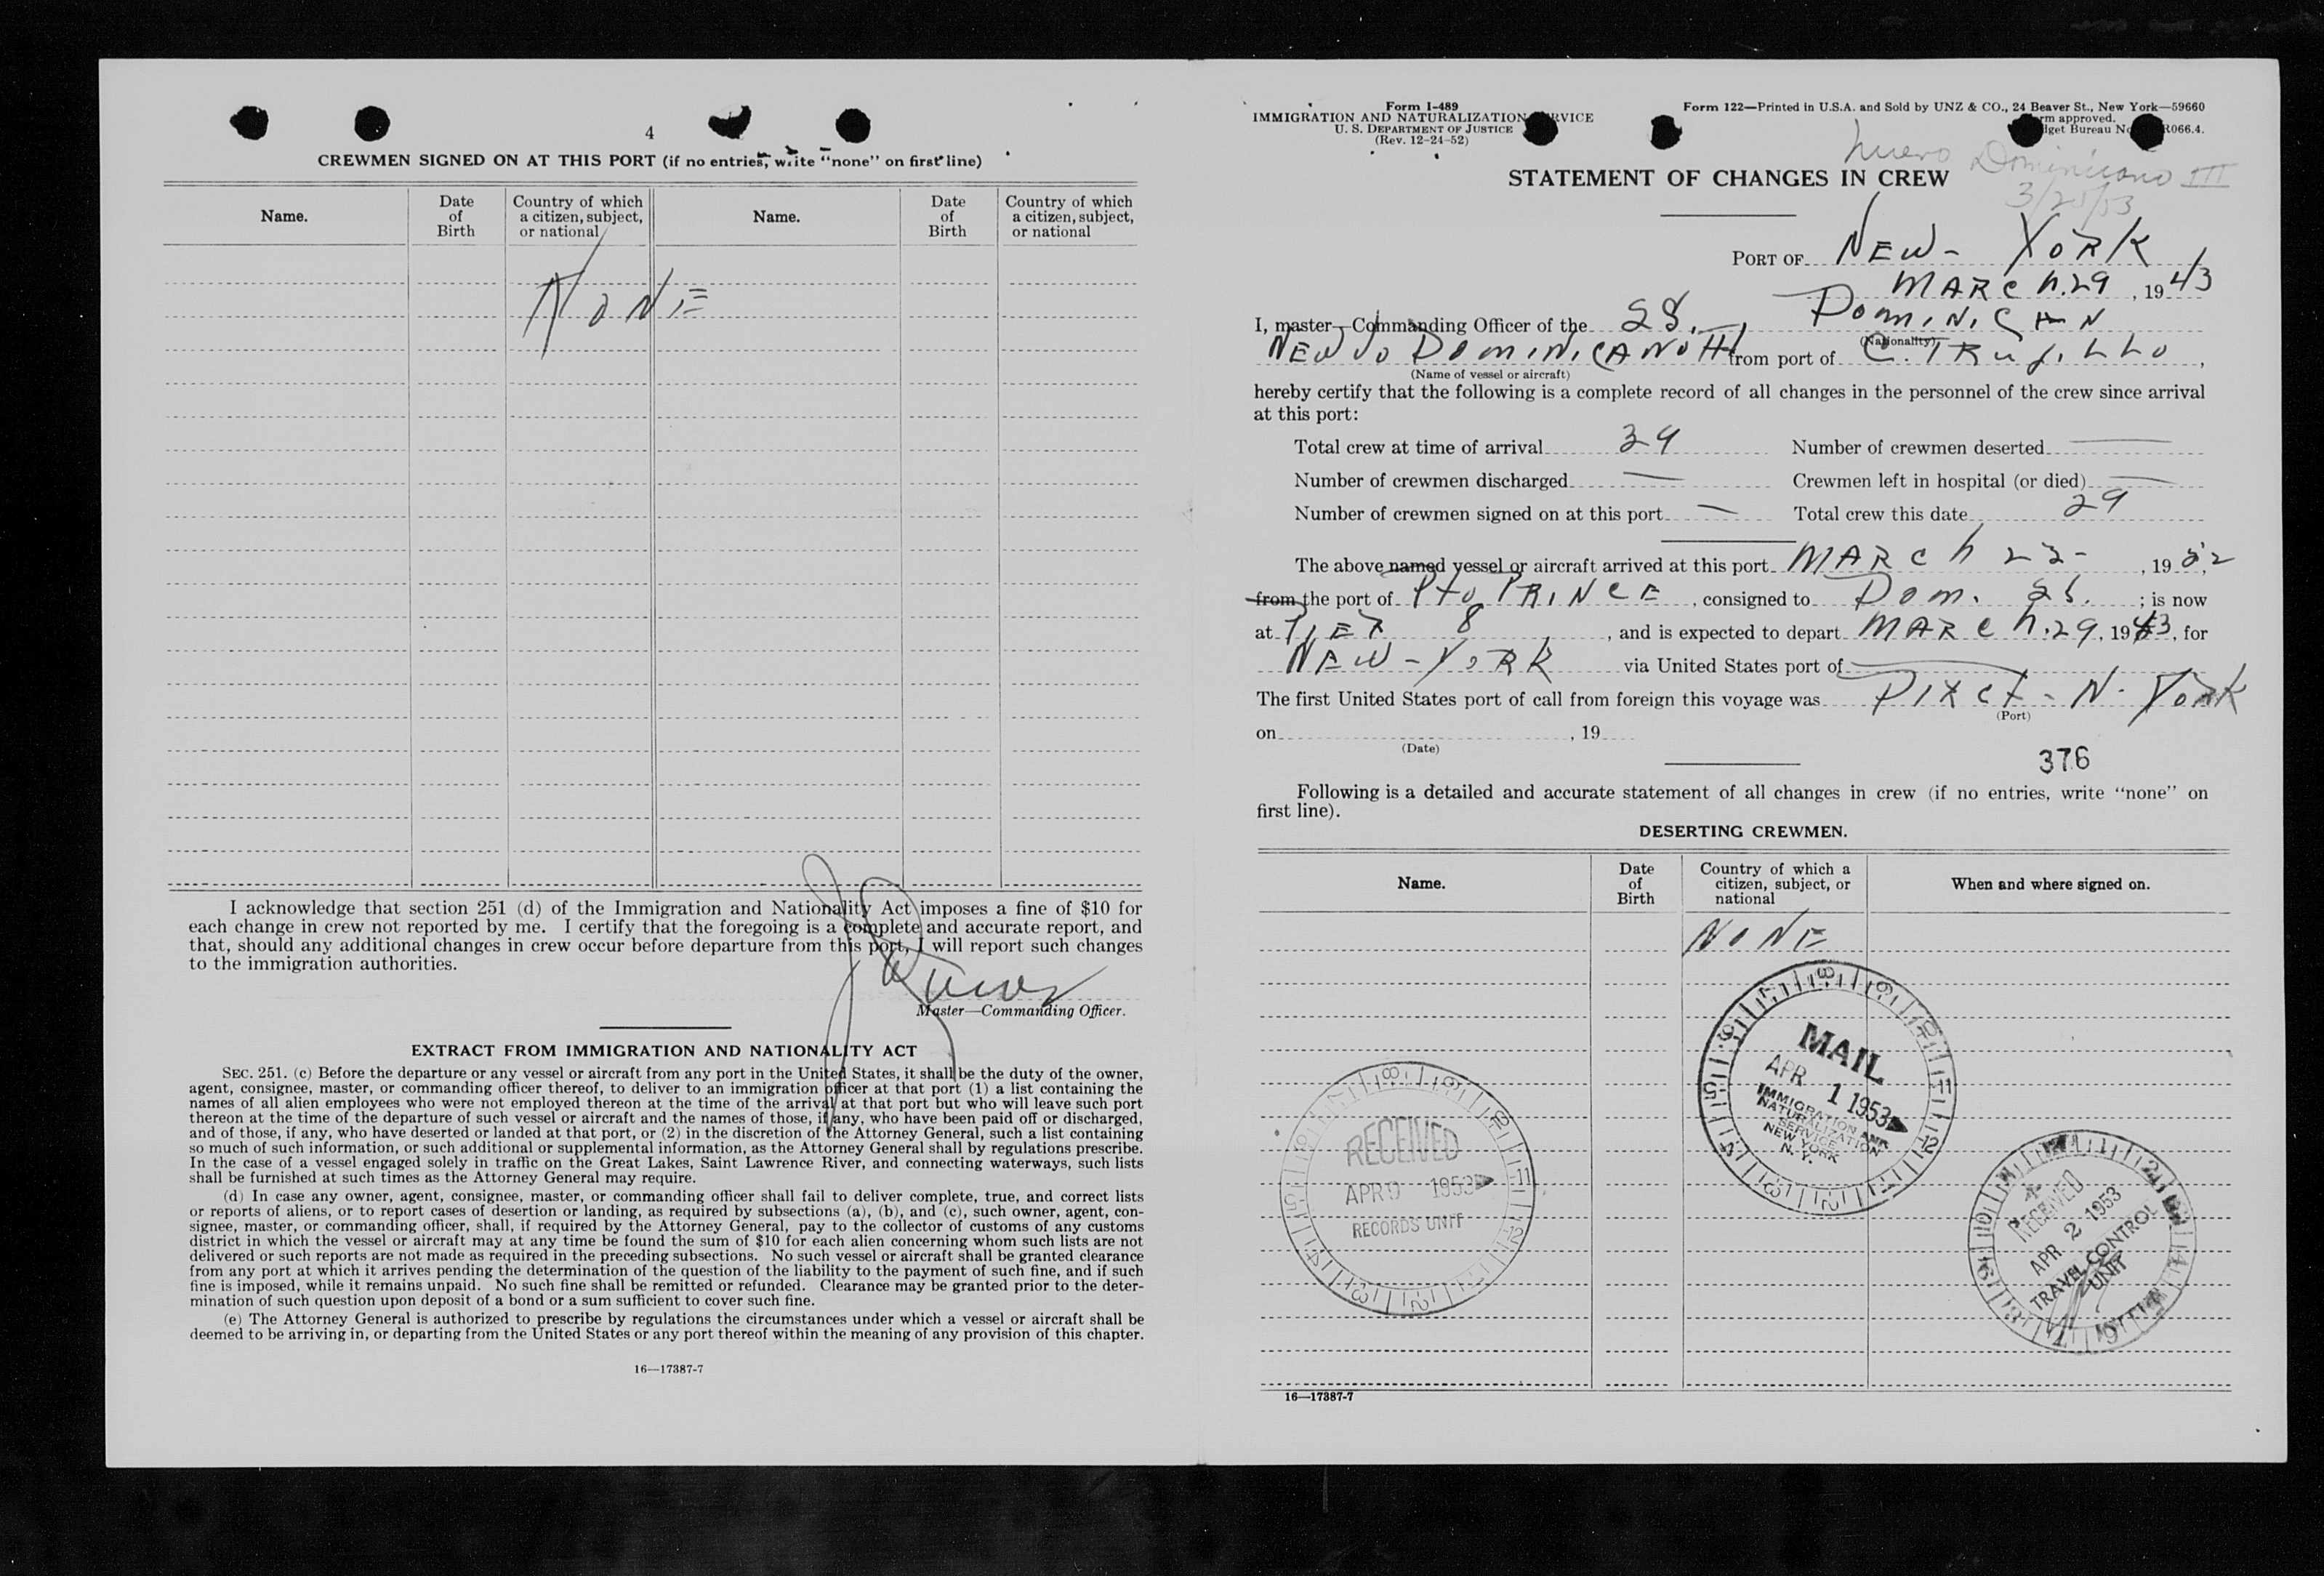 4
CREWMEN SIGNED ON AT THIS PORT (if no entries, write “none” on first line)
Name.
Date of Birth
Country of which a citizen, subject, or national
Name.
Date of Birth
Country of which a citizen, subject, or national
NONE
I acknowledge that section 251 (d) of the Immigration and Nationality Act imposes a fine of $10 for
each change in crew not reported by me. I certify that the foregoing is a complete and accurate report, and
that, should any additional changes in crew occur before departure from this port, I will report such changes
to the immigration authorities.
Master—Commanding Officer.
EXTRACT FROM IMMIGRATION AND NATIONALITY ACT
SEC. 251. (c) Before the departure or any vessel or aircraft from any port in the United States, it shall be the duty of the owner,
agent, consignee, master, or commanding officer thereof, to deliver to an immigration officer at that port (1) a list containing the
names of all alien employees who were not employed thereon at the time of the arrival at that port but who will leave such port
thereon at the time of the departure of such vessel or aircraft and the names of those, if any, who have been paid off or discharged,
and of those, if any, who have deserted or landed at that port, or (2) in the discretion of the Attorney General, such a list containing
so much of such information, or such additional or supplemental information, as the Attorney General shall by regulations prescribe.
In the case of a vessel engaged solely in traffic on the Great Lakes, Saint Lawrence River, and connecting waterways, such lists
shall be furnished at such times as the Attorney General may require.
(d) In case any owner, agent, consignee, master, or commanding officer shall fail to deliver complete, true, and correct lists
or reports of aliens, or to report cases of desertion or landing, as required by subsections (a), (b), and (c), such owner, agent, con-
signee, master, or commanding officer, shall, if required by the Attorney General, pay to the collector of customs of any customs
district in which the vessel or aircraft may at any time be found the sum of $10 for each alien concerning whom such lists are not
delivered or such reports are not made as required in the preceding subsections. No such vessel or aircraft shall be granted clearance
from any port at which it arrives pending the determination of the question of the liability to the payment of such fine, and if such
fine is imposed, while it remains unpaid. No such fine shall be remitted or refunded. Clearance may be granted prior to the deter-
mination of such question upon deposit of a bond or a sum sufficient to cover such fine.
(e) The Attorney General is authorized to prescribe by regulations the circumstances under which a vessel or aircraft shall be
deemed to be arriving in, or departing from the United States or any port thereof within the meaning of any provision of this chapter.
16—17387-7
Form I-489
IMMIGRATION AND NATURALIZATION SERVICE
U. S. DEPARTMENT OF JUSTICE
(Rev. 12-24-52)
Form 122—Printed in U.S.A. and Sold by UNZ & CO., 24 Beaver St., New York—59660
approved.
Bureau No. R066.4.
Nuevo Dominicano III
3/25/53
STATEMENT OF CHANGES IN CREW
PORT OF NEW-YORK
MARCH.29, 1943
I, master—Commanding Officer of the SS. DOMINICAN
(Nationality)
DOMINICANO III from port of C. TRUJILLO,
(Name of vessel or aircraft)
hereby certify that the following is a complete record of all changes in the personnel of the crew since arrival
at this port:
Total crew at time of arrival 29 Number of crewmen deserted —
Number of crewmen discharged — Crewmen left in hospital (or died) —
Number of crewmen signed on at this port — Total crew this date 29
The above named vessel or aircraft arrived at this port MARCH 22-, 19
from the port of PTO PRINCE, consigned to DOM. SS.; is now
at PIER 8, and is expected to depart MARCH.29, 1943, for
NEW-YORK via United States port of —
The first United States port of call from foreign this voyage was N. YORK
(Port)
on , 19
(Date)
376
Following is a detailed and accurate statement of all changes in crew (if no entries, write “none” on
first line).
DESERTING CREWMEN.
Name.
Date of Birth
Country of which a citizen, subject, or national
When and where signed on.
NONE
MAIL
APR 1 1953
IMMIGRATION AND
NATURALIZATION
SERVICE
NEW YORK
N. Y.
RECEIVED
APR 9 1953
RECORDS UNIT
RECEIVED
APR 2 1953
TRAVEL CONTROL
UNIT
16—17387-7